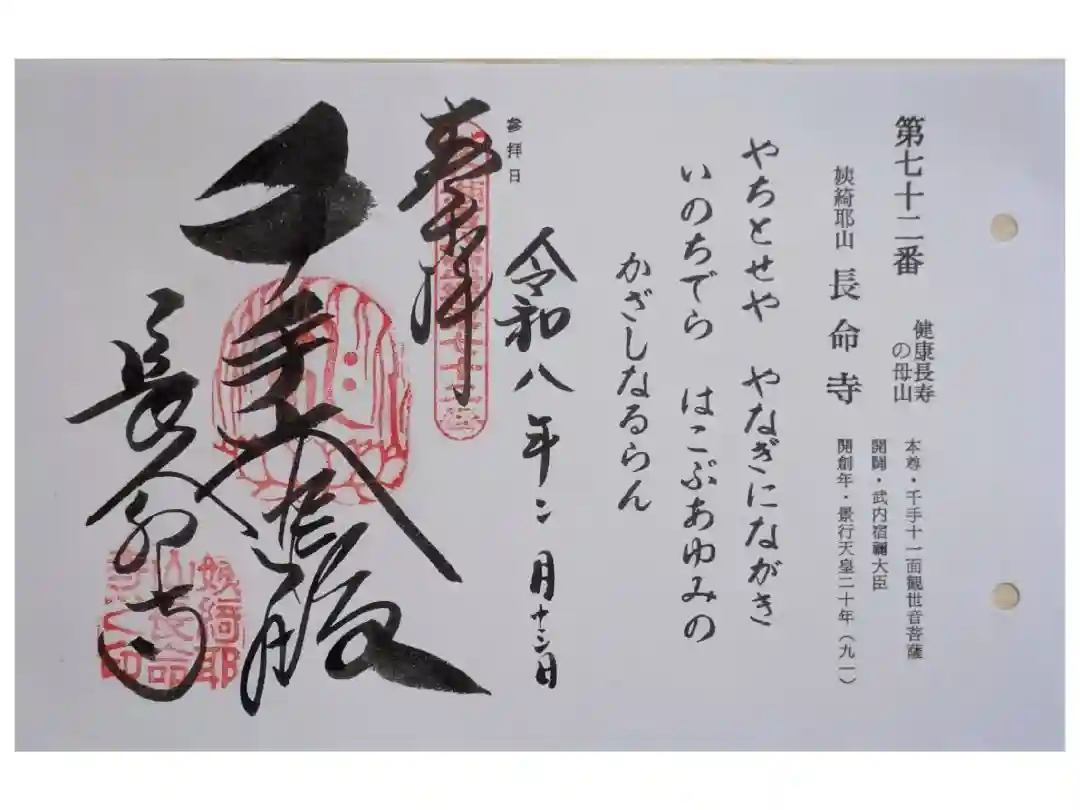 第七十二番
健康長寿
の母山
姨綺耶山 長命寺
本尊・千手十一面観世音菩薩
開闢・武内宿禰大臣
開創年・景行天皇二十年(九一)
やちとせや やなぎにながき
いのちでら はこぶあゆみの
かざしなるらん
参拝日
令和八年二月十三日
奉拝
千手大悲殿
長命寺
姨綺耶
山長命
寺之印